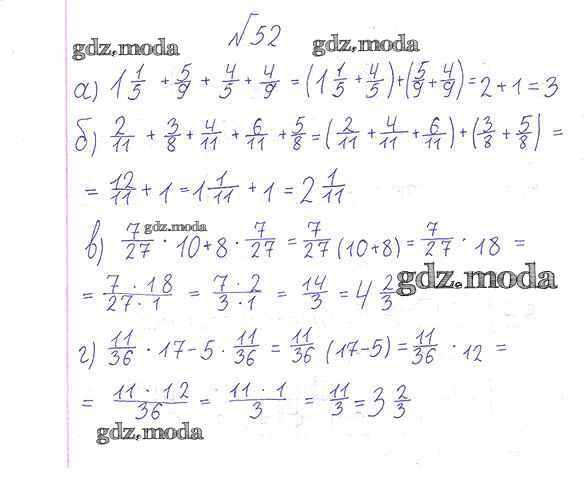 №52
gdz.moda gdz.moda
а) 1 1/5 + 5/9 + 4/5 + 4/9 = (1 1/5 + 4/5) + (5/9 + 4/9) = 2 + 1 = 3
б) 2/11 + 3/8 + 4/11 + 6/11 + 5/8 = (2/11 + 4/11 + 6/11) + (3/8 + 5/8) =
= 12/11 + 1 = 1 1/11 + 1 = 2 1/11
gdz.moda
в) 7/27 · 10 + 8 · 7/27 = 7/27 (10 + 8) = 7/27 · 18 =
gdz.moda
= 7 · 18/27 · 1 = 7 · 2/3 · 1 = 14/3 = 4 2/3
г) 11/36 · 17 - 5 · 11/36 = 11/36 (17 - 5) = 11/36 · 12 =
= 11 · 12/36 = 11 · 1/3 = 11/3 = 3 2/3
gdz.moda